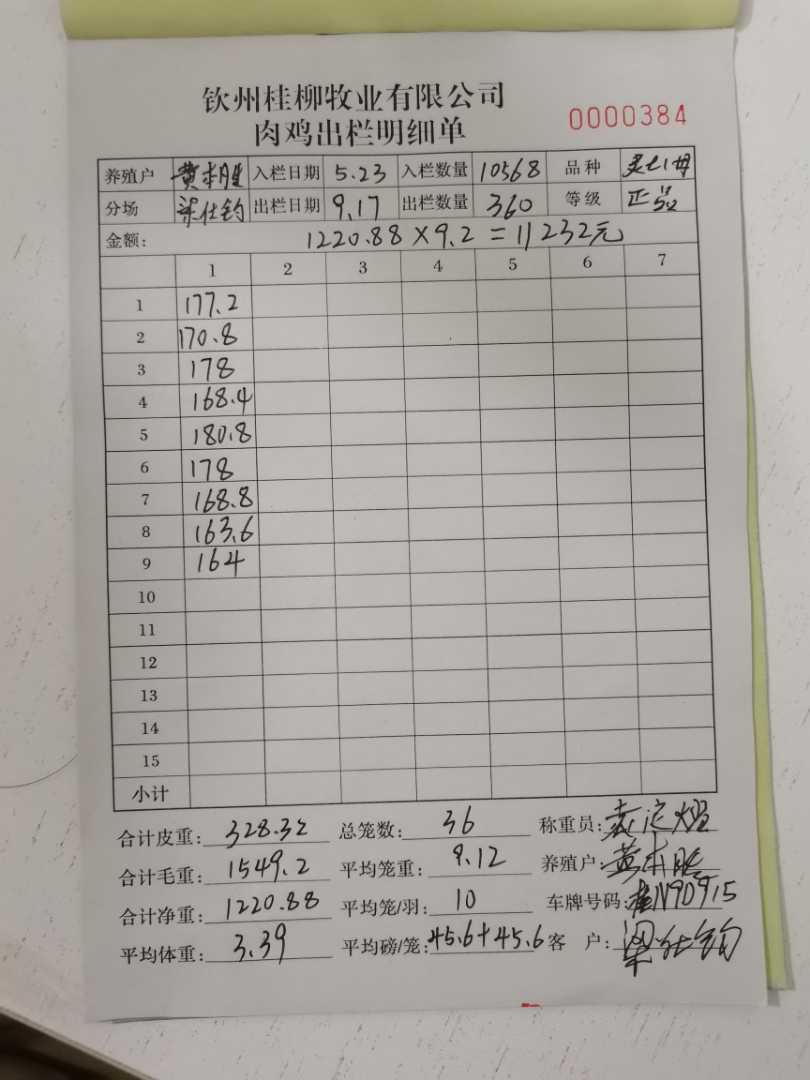 钦州桂柳牧业有限公司
肉鸡出栏明细单
0000384
养殖户 黄本胜 入栏日期 5.23 入栏数量 10568 品种
分场 梁仕钧 出栏日期 9.17 出栏数量 360 等级 正品
金额: 1220.88×9.2=11232元
1 2 3 4 5 6 7
1 177.2
2 170.8
3 178
4 168.4
5 180.8
6 178
7 168.8
8 163.6
9 164
10
11
12
13
14
15
小计
合计皮重: 328.32 总笼数: 36 称重员:
合计毛重: 1549.2 平均笼重: 9.12 养殖户: 黄本胜
合计净重: 1220.88 平均笼/羽: 10 车牌号码: 桂N90915
平均体重: 3.39 平均磅/笼: 45.6+45.6 客 户: 梁仕钧